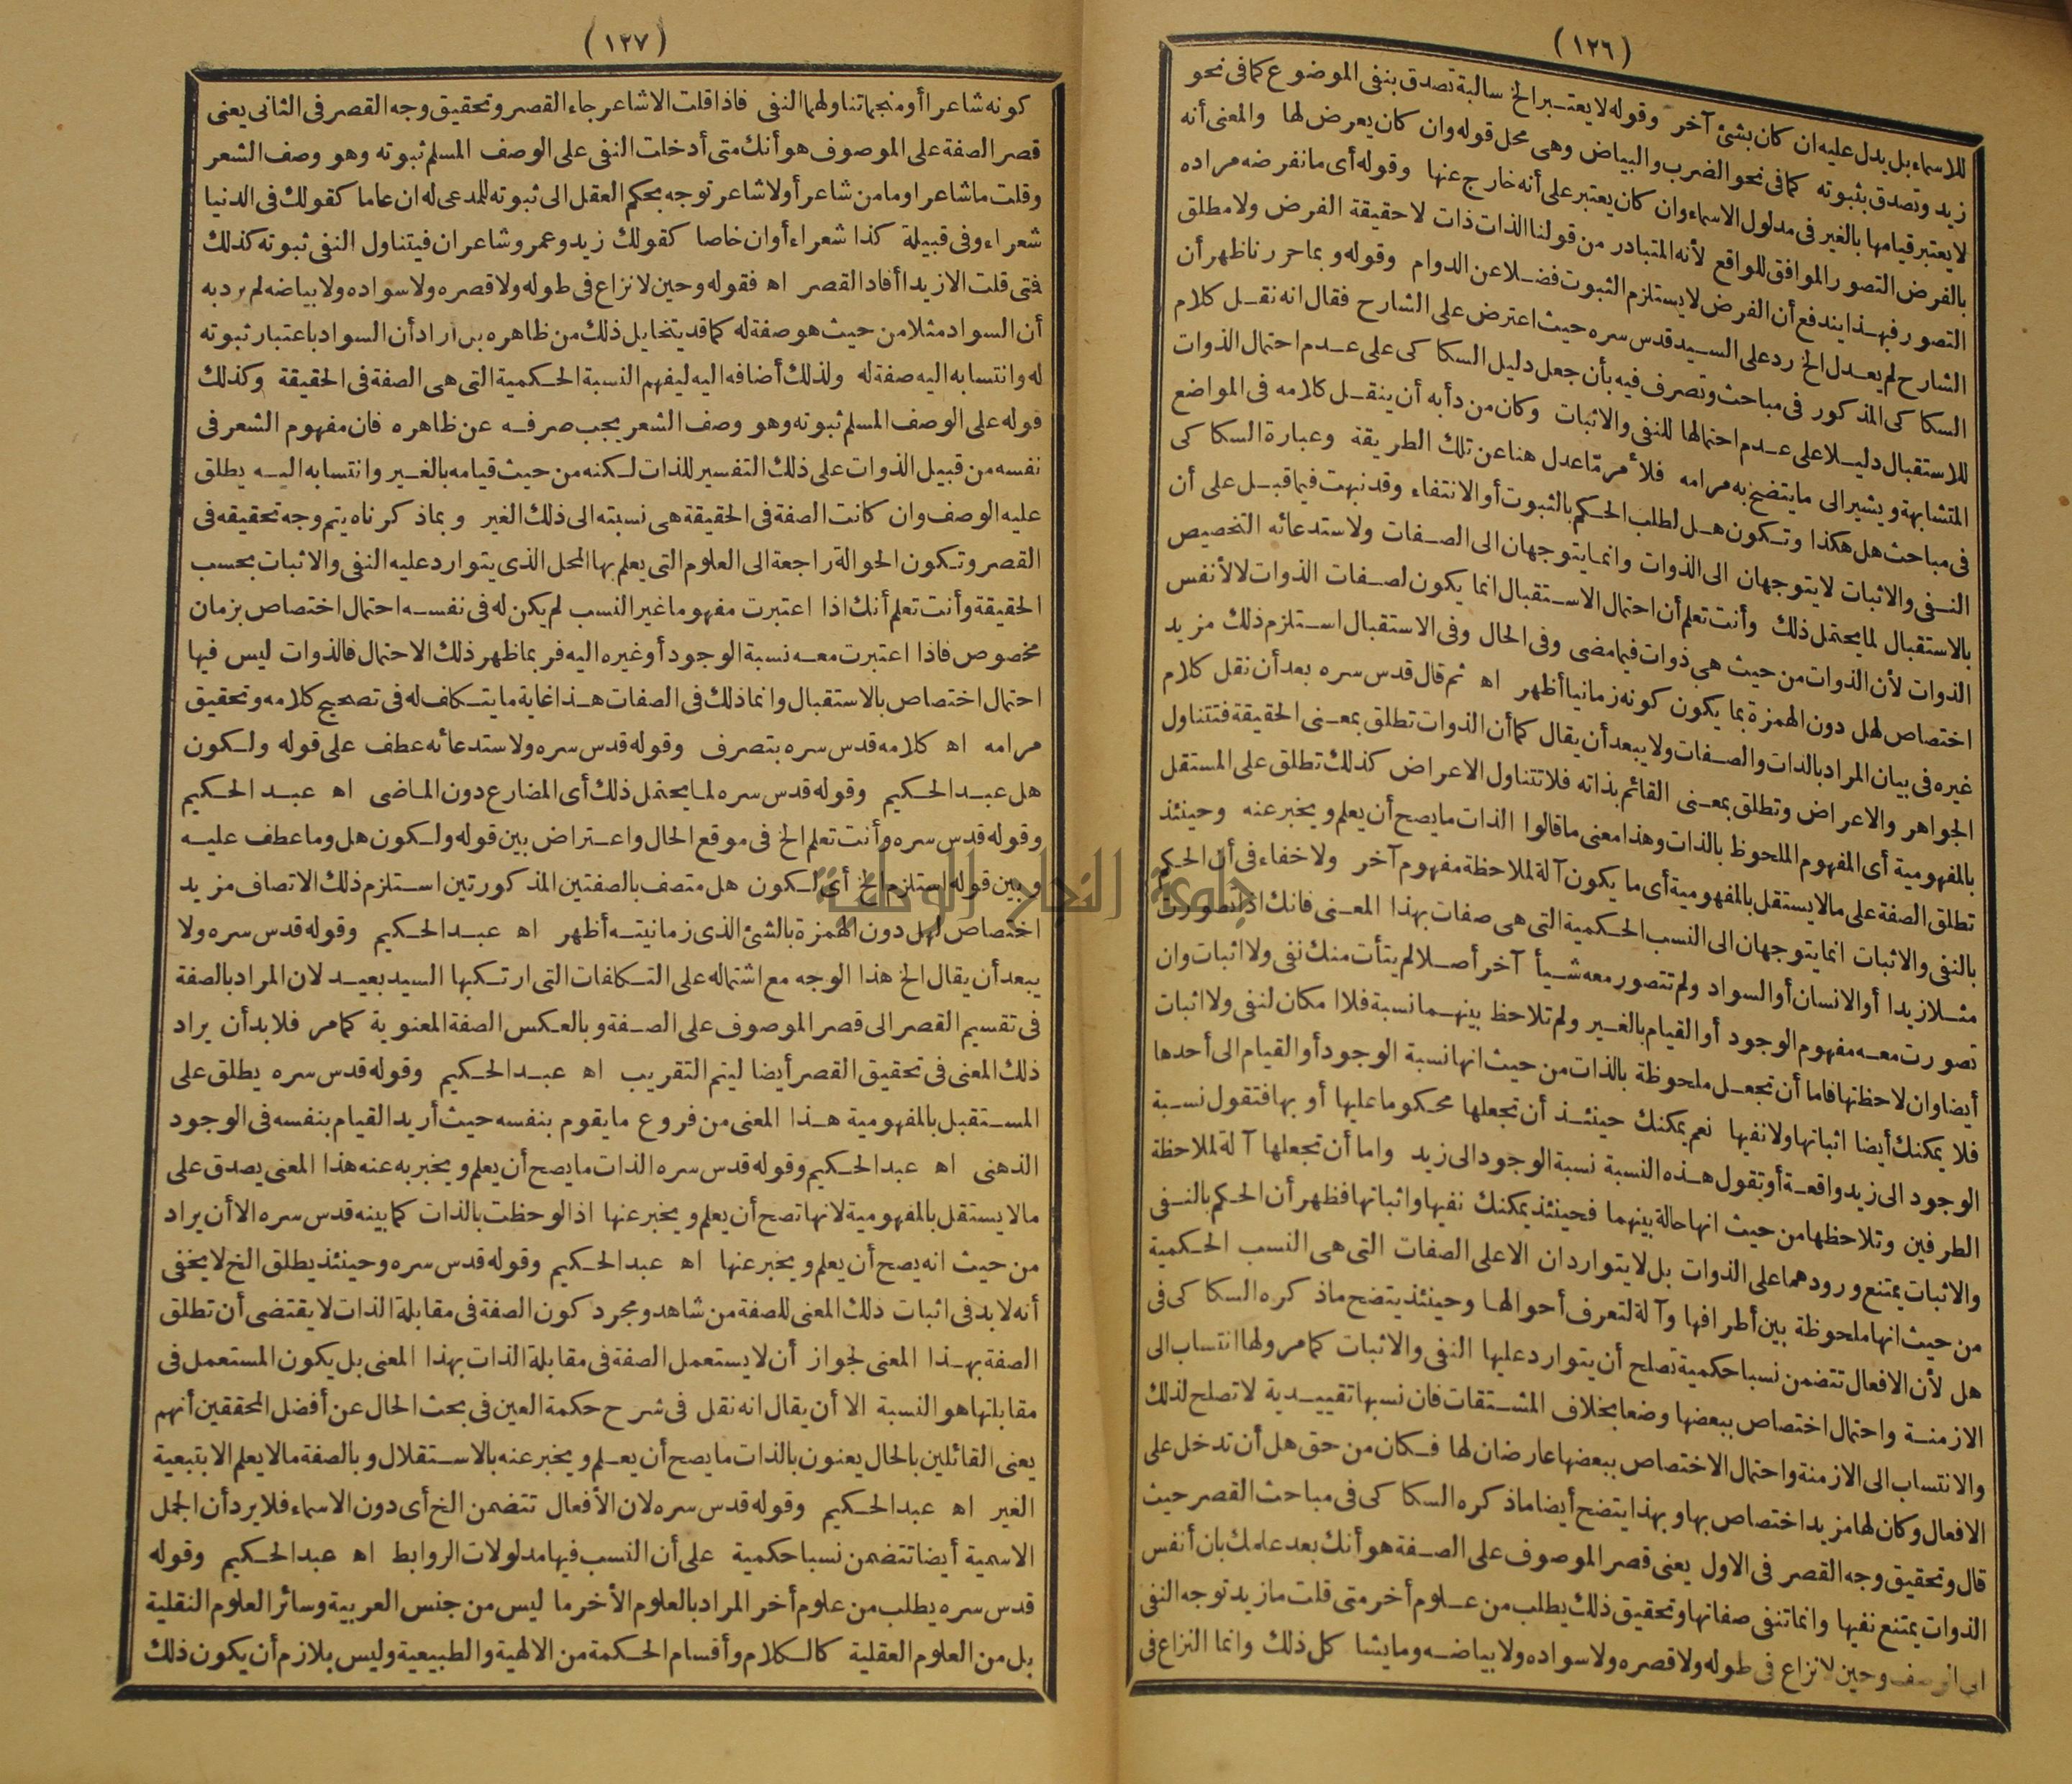 (١٢٦)
للاسماء بل يدل عليه ان كان بشئ آخر وقوله لا يعتبر الخ سالبة تصدق بنفى الموضوع كما فى نحو
زيد وتصدق بثبوته كما فى نحو الضرب والبياض وهى محل قوله وان كان يعرض لها والمعنى أنه
لا يعتبر قيامها بالغير فى مدلول الاسماء وان كان يعتبر على أنه خارج عنها وقوله أى ما نفرضه مراده
بالفرض التصور الموافق للواقع لأنه المتبادر من قولنا الذات ذات لا حقيقة الفرض ولا مطلق
التصور فبهذا يندفع أن الفرض لا يستلزم الثبوت فضلا عن الدوام وقوله وبما حررنا ظهر أن
الشارح لم يعدل الخ رد على السيد قدس سره حيث اعترض على الشارح فقال انه نقل كلام
السكاكى المذكور فى مباحث وتصرف فيه بأن جعل دليل السكاكى على عدم احتمال الذوات
للاستقبال دليلا على عدم احتمالها للنفى والاثبات وكان من دأبه أن ينقل كلامه فى المواضع
المتشابهة ويشير الى ما يتضح به مرامه فلأمر ما عدل هنا عن تلك الطريقة وعبارة السكاكى
فى مباحث هل هكذا وتكون هل لطلب الحكم بالثبوت أو الانتفاء وقد نبهت فيما قبل على أن
النفى والاثبات لا يتوجهان الى الذوات وانما يتوجهان الى الصفات ولاستدعائه التخصيص
بالاستقبال لما يحتمل ذلك وأنت تعلم أن احتمال الاستقبال انما يكون لصفات الذوات لا لأنفس
الذوات لأن الذوات من حيث هى ذوات فيما مضى وفى الحال وفى الاستقبال استلزم ذلك مزيد
اختصاص لهل دون الهمزة بما يكون كونه زمانيا أظهر اه ثم قال قدس سره بعد أن نقل كلام
غيره فى بيان المراد بالذات والصفات ولا يبعد أن يقال كما أن الذوات تطلق بمعنى الحقيقة فتتناول
الجواهر والاعراض وتطلق بمعنى القائم بذاته فلا تتناول الاعراض كذلك تطلق على المستقل
بالمفهومية أى المفهوم الملحوظ بالذات وهذا معنى ما قالوا الذات ما يصح أن يعلم ويخبر عنه وحينئذ
تطلق الصفة على ما لا يستقل بالمفهومية أى ما يكون آلة لملاحظة مفهوم آخر ولا خفاء فى أن الحكم
بالنفى والاثبات انما يتوجهان الى النسب الحكمية التى هى صفات بهذا المعنى فانك اذا تصورت
مثلا زيدا أو الانسان أو السواد ولم تتصور معه شيأ آخر أصلا لم يتأت منك نفى ولا اثبات وان
تصورت معه مفهوم الوجود أو القيام بالغير ولم تلاحظ بينهما نسبة فلا امكان لنفى ولا اثبات
أيضا وان لاحظتها فاما أن تجعل ملحوظة بالذات من حيث انها نسبة الوجود أو القيام الى أحدها
فلا يمكنك أيضا اثباتها ولا نفيها نعم يمكنك حينئذ أن تجعلها محكوما عليها أو بها فتقول نسبة
الوجود الى زيد واقعة أو تقول هذه النسبة نسبة الوجود الى زيد واما أن تجعلها آلة لملاحظة
الطرفين وتلاحظها من حيث انها حالة بينهما فحينئذ يمكنك نفيها واثباتها فظهر أن الحكم بالنفى
والاثبات يمتنع ورودهما على الذوات بل لا يتواردان الا على الصفات التى هى النسب الحكمية
من حيث انها ملحوظة بين أطرافها وآلة لتعرف أحوالها وحينئذ يتضح ما ذكره السكاكى فى
هل لأن الافعال تتضمن نسبا حكمية تصلح أن يتوارد عليها النفى والاثبات كما مر ولها انتساب الى
الازمنة واحتمال اختصاص ببعضها وضعا بخلاف المشتقات فان نسبها تقييدية لا تصلح لذلك
والانتساب الى الازمنة واحتمال الاختصاص ببعضها عارضان لها فكان من حق هل أن تدخل على
الافعال وكان لها مزيد اختصاص بها وبهذا يتضح أيضا ما ذكره السكاكى فى مباحث القصر حيث
قال وتحقيق وجه القصر فى الاول يعنى قصر الموصوف على الصفة هو أنك بعد علمك بان أنفس
الذوات يمتنع نفيها وانما تنفى صفاتها وتحقيق ذلك يطلب من علوم أخر متى قلت ما زيد توجه النفى
الى الوصف وحين لا نزاع فى طوله ولا قصره ولا سواده ولا بياضه وما يشا كل ذلك وانما النزاع فى
(١٢٧)
كونه شاعرا أو منجما تناولهما النفى فاذا قلت الا شاعر جاء القصر وتحقيق وجه القصر فى الثانى يعنى
قصر الصفة على الموصوف هو أنك متى أدخلت النفى على الوصف المسلم ثبوته وهو وصف الشعر
وقلت ما شاعر او ما من شاعر أو لا شاعر توجه بحكم العقل الى ثبوته للمدعى له ان عاما كقولك فى الدنيا
شعراء وفى قبيلة كذا شعراء أو ان خاصا كقولك زيد وعمرو شاعران فيتناول النفى ثبوته كذلك
فتى قلت الا زيدا أفاد القصر اه فقوله وحين لا نزاع فى طوله ولا قصره ولا سواده ولا بياضه لم يرد به
أن السواد مثلا من حيث هو صفة له كما قد يتخايل ذلك من ظاهره بل أراد أن السواد باعتبار ثبوته
له وانتسابه اليه صفة له ولذلك أضافه اليه ليفهم النسبة الحكمية التى هى الصفة فى الحقيقة وكذلك
قوله على الوصف المسلم ثبوته وهو وصف الشعر يجب صرفه عن ظاهره فان مفهوم الشعر فى
نفسه من قبيل الذوات على ذلك التفسير للذات لكنه من حيث قيامه بالغير وانتسابه اليه يطلق
عليه الوصف وان كانت الصفة فى الحقيقة هى نسبته الى ذلك الغير وبما ذكرناه يتم وجه تحقيقه فى
القصر وتكون الحوالة راجعة الى العلوم التى يعلم بها المحل الذى يتوارد عليه النفى والاثبات بحسب
الحقيقة وأنت تعلم أنك اذا اعتبرت مفهوما غير النسب لم يكن له فى نفسه احتمال اختصاص بزمان
مخصوص فاذا اعتبرت معه نسبة الوجود أو غيره اليه فربما ظهر ذلك الاحتمال فالذوات ليس فيها
احتمال اختصاص بالاستقبال وانما ذلك فى الصفات هذا غاية ما يتكلف له فى تصحيح كلامه وتحقيق
مرامه اه كلامه قدس سره بتصرف وقوله قدس سره ولاستدعائه عطف على قوله ولكون
هل عبد الحكيم وقوله قدس سره لما يحتمل ذلك أى المضارع دون الماضى اه عبد الحكيم
وقوله قدس سره وأنت تعلم الخ فى موقع الحال واعتراض بين قوله ولكون هل وما عطف عليه
وبين قوله استلزم الخ أى لكون هل متصف بالصفتين المذكورتين استلزم ذلك الاتصاف مزيد
اختصاص لهل دون الهمزة بالشئ الذى زمانيته أظهر اه عبد الحكيم وقوله قدس سره ولا
يبعد أن يقال الخ هذا الوجه مع اشتماله على التكلفات التى ارتكبها السيد بعيد لان المراد بالصفة
فى تقسيم القصر الى قصر الموصوف على الصفة وبالعكس الصفة المعنوية كما مر فلا بد أن يراد
ذلك المعنى فى تحقيق القصر أيضا ليتم التقريب اه عبد الحكيم وقوله قدس سره يطلق على
المستقبل بالمفهومية هذا المعنى من فروع ما يقوم بنفسه حيث أريد القيام بنفسه فى الوجود
الذهنى اه عبد الحكيم وقوله قدس سره الذات ما يصح أن يعلم ويخبر به عنه هذا المعنى يصدق على
مالا يستقل بالمفهومية لانها تصح أن يعلم ويخبر عنها اذا لوحظت بالذات كما بينه قدس سره الا أن يراد
من حيث انه يصح أن يعلم ويخبر عنها اه عبد الحكيم وقوله قدس سره وحينئذ يطلق الخ لا يخفى
أنه لا بد فى اثبات ذلك المعنى للصفة من شاهد ومجرد كون الصفة فى مقابلة الذات لا يقتضى أن تطلق
الصفة بهذا المعنى لجواز أن لا يستعمل الصفة فى مقابلة الذات بهذا المعنى بل يكون المستعمل فى
مقابلتها هو النسبة الا أن يقال انه نقل فى شرح حكمة العين فى بحث الحال عن أفضل المحققين أنهم
يعنى القائلين بالحال يعنون بالذات ما يصح أن يعلم ويخبر عنه بالاستقلال وبالصفة مالا يعلم الا بتبعية
الغير اه عبد الحكيم وقوله قدس سره لان الأفعال تتضمن الخ أى دون الاسماء فلا يرد أن الجمل
الاسمية أيضا تتضمن نسبا حكمية على أن النسب فيها مدلولات الروابط اه عبد الحكيم وقوله
قدس سره يطلب من علوم أخر المراد بالعلوم الأخر ما ليس من جنس العربية وسائر العلوم النقلية
بل من العلوم العقلية كالكلام وأقسام الحكمة من الالهية والطبيعية وليس بلازم أن يكون ذلك
جامعة النجاح الوطنية